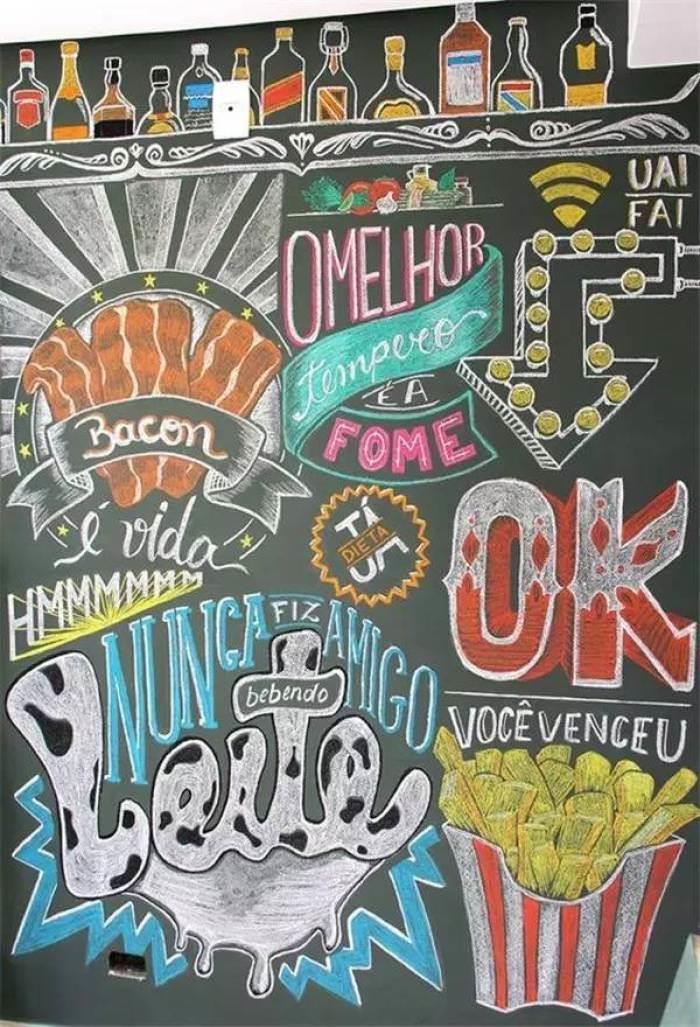 UAI
FAI
OMELHOR
tempero
É A
FOME
Bacon
é vida
HMMMMMMM
TÁ
DIETA
OK
VOCÊ VENCEU
NUNCA FIZ AMIGO
bebendo
Leite